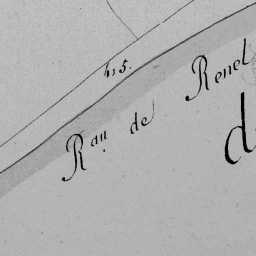 615.
Rau de Renel
d